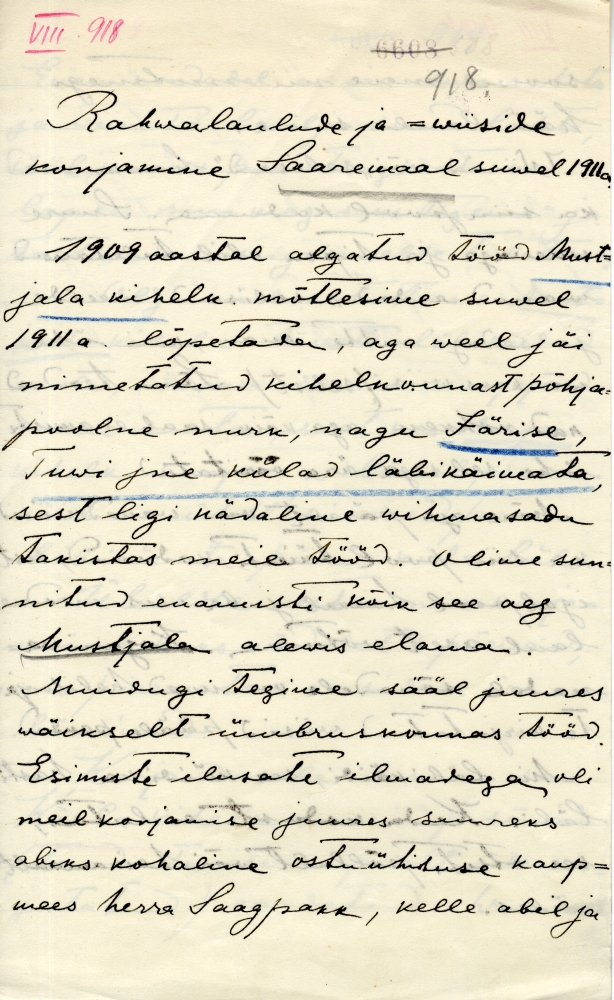 VIII 918
6608
918.
Rahwalaulude ja =wiiside
korjamine Saaremaal suwel 1911a
1909 aastal algatud tööd Must=
jala kihelk. mõtlesime suwel
1911 a. lõpetada, aga weel jäi
nimetatud kihelkonnast põhja=
poolne nurk, nagu Järise,
Tuwi jne külad läbikäimata,
sest ligi nädaline wihmasadu
takistas meie tööd. Olime sun=
nitud enamisti kõik see aeg
Mustjala alewis elama.
Muidugi tegime sääl juures
wäikselt ümbruskonnas tööd.
Esimiste ilusate ilmadega oli
meil korjamise juures suureks
abiks kohaline ostuühisuse kaup=
mees herra Saagpakk, kelle abil ja